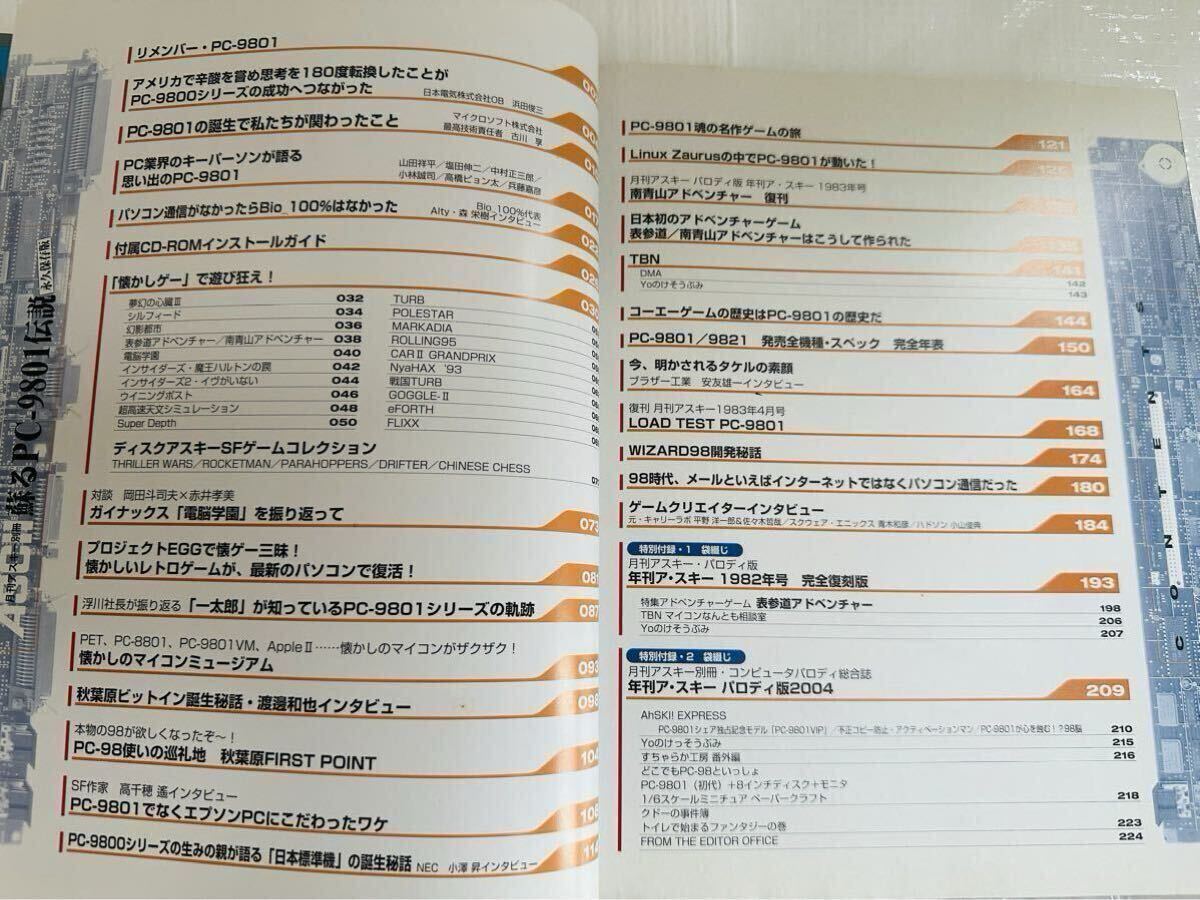 月刊アスキー別冊
蘇るPC-9801伝説 永久保存版
リメンバー・PC-9801
アメリカで辛酸を嘗め思考を180度転換したことが
PC-9800シリーズの成功へつながった 日本電気株式会社OB 浜田俊三
PC-9801の誕生で私たちが関わったこと
マイクロソフト株式会社
最高技術責任者 古川 享
PC業界のキーパーソンが語る
思い出のPC-9801
山田祥平/塩田伸二/中村正三郎/
小林誠司/高橋ピョン太/兵藤嘉彦
パソコン通信がなかったらBio_100%はなかった
Bio_100%代表
Alty・森 栄樹インタビュー
付属CD-ROMインストールガイド
「懐かしゲー」で遊び狂え! 030
夢幻の心臓Ⅲ 032
シルフィード 034
幻影都市 036
表参道アドベンチャー/南青山アドベンチャー 038
電脳学園 040
インサイダーズ・魔王ハルトンの罠 042
インサイダーズ2・イヴがいない 044
ウイニングポスト 046
超高速天文シミュレーション 048
Super Depth 050
TURB
POLESTAR
MARKADIA
ROLLING95
CARⅡ GRANDPRIX
NyaHAX '93
戦国TURB
GOGGLE-Ⅱ
eFORTH
FLIXX
ディスクアスキーSFゲームコレクション
THRILLER WARS/ROCKETMAN/PARAHOPPERS/DRIFTER/CHINESE CHESS
対談 岡田斗司夫×赤井孝美
ガイナックス「電脳学園」を振り返って 073
プロジェクトEGGで懐ゲー三昧!
懐かしいレトロゲームが、最新のパソコンで復活! 081
浮川社長が振り返る「一太郎」が知っているPC-9801シリーズの軌跡 087
PET、PC-8801、PC-9801VM、AppleⅡ……懐かしのマイコンがザクザク!
懐かしのマイコンミュージアム 093
秋葉原ビットイン誕生秘話・渡邊和也インタビュー 098
本物の98が欲しくなったぞ〜!
PC-98使いの巡礼地 秋葉原FIRST POINT 104
SF作家 高千穂 遙インタビュー
PC-9801でなくエプソンPCにこだわったワケ 108
PC-9800シリーズの生みの親が語る「日本標準機」の誕生秘話 NEC 小澤 昇インタビュー 114
PC-9801魂の名作ゲームの旅 121
Linux Zaurusの中でPC-9801が動いた!
月刊アスキー パロディ版 年刊ア・スキー 1983年号
南青山アドベンチャー 復刊
日本初のアドベンチャーゲーム
表参道/南青山アドベンチャーはこうして作られた
TBN 141
DMA 142
Yoのけそうぶみ 143
コーエーゲームの歴史はPC-9801の歴史だ 144
PC-9801/9821 発売全機種・スペック 完全年表 150
今、明かされるタケルの素顔
ブラザー工業 安友雄一インタビュー 164
復刊 月刊アスキー1983年4月号
LOAD TEST PC-9801 168
WIZARD98開発秘話 174
98時代、メールといえばインターネットではなくパソコン通信だった 180
ゲームクリエイターインタビュー 184
元・キャリーラボ 平野 洋一郎&佐々木哲哉/スクウェア・エニックス 青木和彦/ハドソン 小山俊典
特別付録・1 袋綴じ
月刊アスキー・パロディ版
年刊ア・スキー 1982年号 完全復刻版 193
特集アドベンチャーゲーム 表参道アドベンチャー 198
TBN マイコンなんとも相談室 206
Yoのけそうぶみ 207
特別付録・2 袋綴じ
月刊アスキー別冊・コンピュータパロディ総合誌
年刊ア・スキー パロディ版2004 209
AhSKI! EXPRESS
PC-9801シェア独占記念モデル「PC-9801VIP」/不正コピー防止・アクティベーションマン/PC-9801が心を蝕む!?98脳 210
Yoのけっそうぶみ 215
すちゃらか工房 番外編 216
どこでもPC-98といっしょ
PC-9801(初代)+8インチディスク+モニタ
1/6スケールミニチュア ペーパークラフト 218
クドーの事件簿
トイレで始まるファンタジーの巻 223
FROM THE EDITOR OFFICE 224
CONTENTS